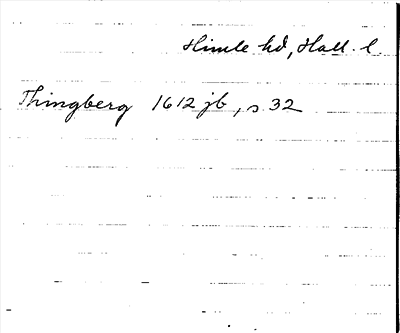 Himle hd, Hall. l.
Thingberg 1612 jb, s 32